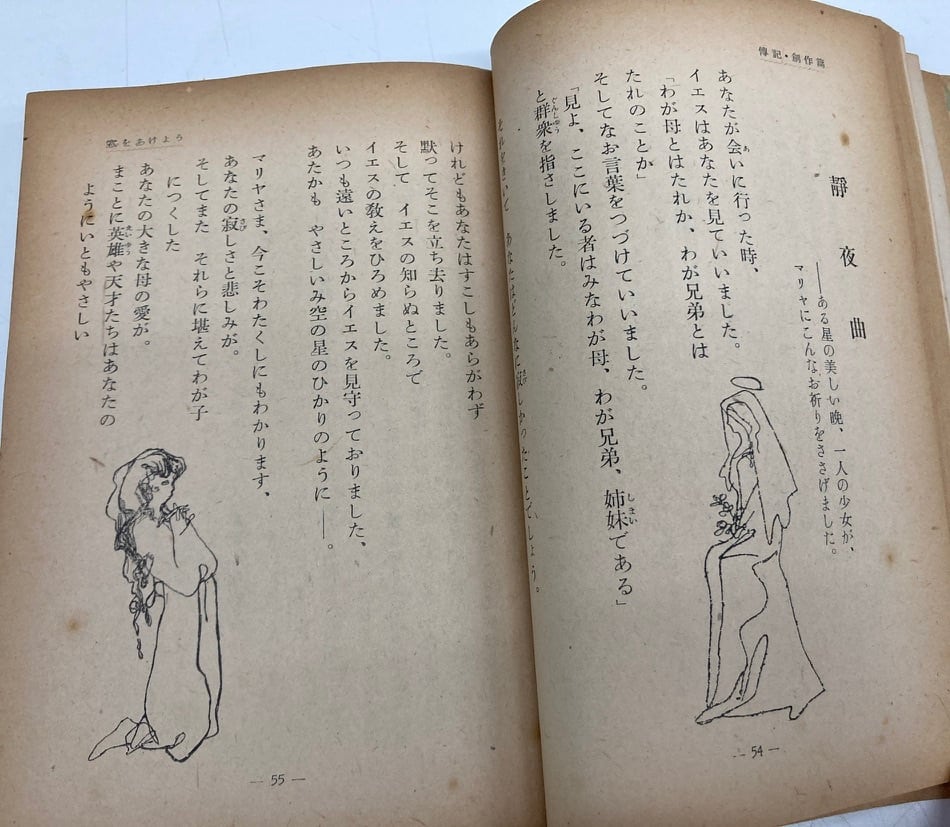 傳記・創作篇
靜夜曲
――ある星の美しい晩、一人の少女が、
マリヤにこんなお祈りをささげました。
あなたが会いに行った時、
イエスはあなたを見ていいました。
「わが母とはたれか、わが兄弟とは
たれのことか」
そしてなお言葉をつづけていいました。
「見よ、ここにいる者はみなわが母、わが兄弟、姉妹である」
と群衆を指さしました。
あなたはどんなに寂しかったことでしょう。
― 54 ―
窓をあけよう
けれどもあなたはすこしもあらがわず
默ってそこを立ち去りました。
そして　イエスの知らぬところで
イエスの教えをひろめました。
いつも遠いところからイエスを見守っておりました、
あたかも　やさしいみ空の星のひかりのように――。
マリヤさま、今こそわたくしにもわかります、
あなたの寂しさと悲しみが。
そしてまた　それらに堪えてわが子
につくした
あなたの大きな母の愛が。
まことに英雄や天才たちはあなたの
ようにいともやさしい
― 55 ―